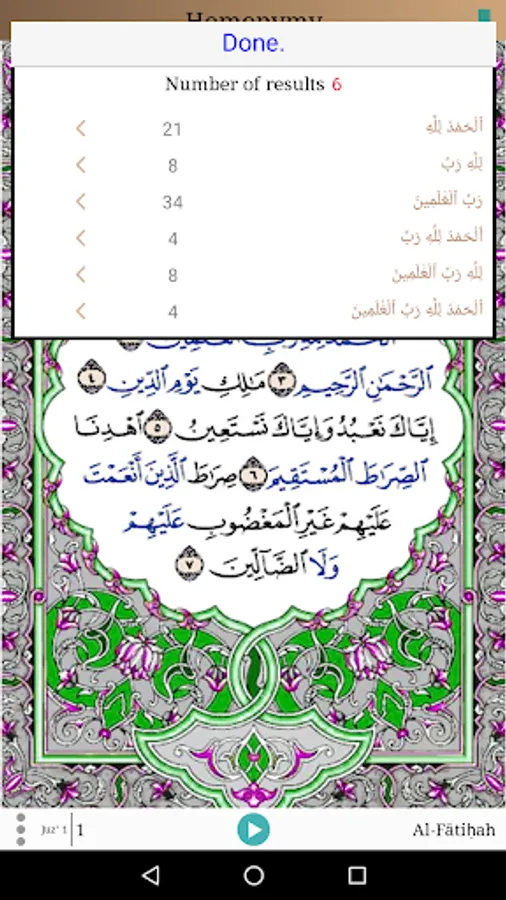 Homonymy
Done.
Number of results 6
21 ٱلْحَمْدُ لِلَّهِ
8 لِلَّهِ رَبِّ
34 رَبِّ ٱلْعَٰلَمِينَ
4 ٱلْحَمْدُ لِلَّهِ رَبِّ
8 لِلَّهِ رَبِّ ٱلْعَٰلَمِينَ
4 ٱلْحَمْدُ لِلَّهِ رَبِّ ٱلْعَٰلَمِينَ
ٱلرَّحْمَٰنِ ٱلرَّحِيمِ ٣ مَٰلِكِ يَوْمِ ٱلدِّينِ ٤
إِيَّاكَ نَعْبُدُ وَإِيَّاكَ نَسْتَعِينُ ٥ ٱهْدِنَا
ٱلصِّرَٰطَ ٱلْمُسْتَقِيمَ ٦ صِرَٰطَ ٱلَّذِينَ أَنْعَمْتَ
عَلَيْهِمْ غَيْرِ ٱلْمَغْضُوبِ عَلَيْهِمْ
وَلَا ٱلضَّآلِّينَ ٧
Juz' 1 1 Al-Fātiḥah